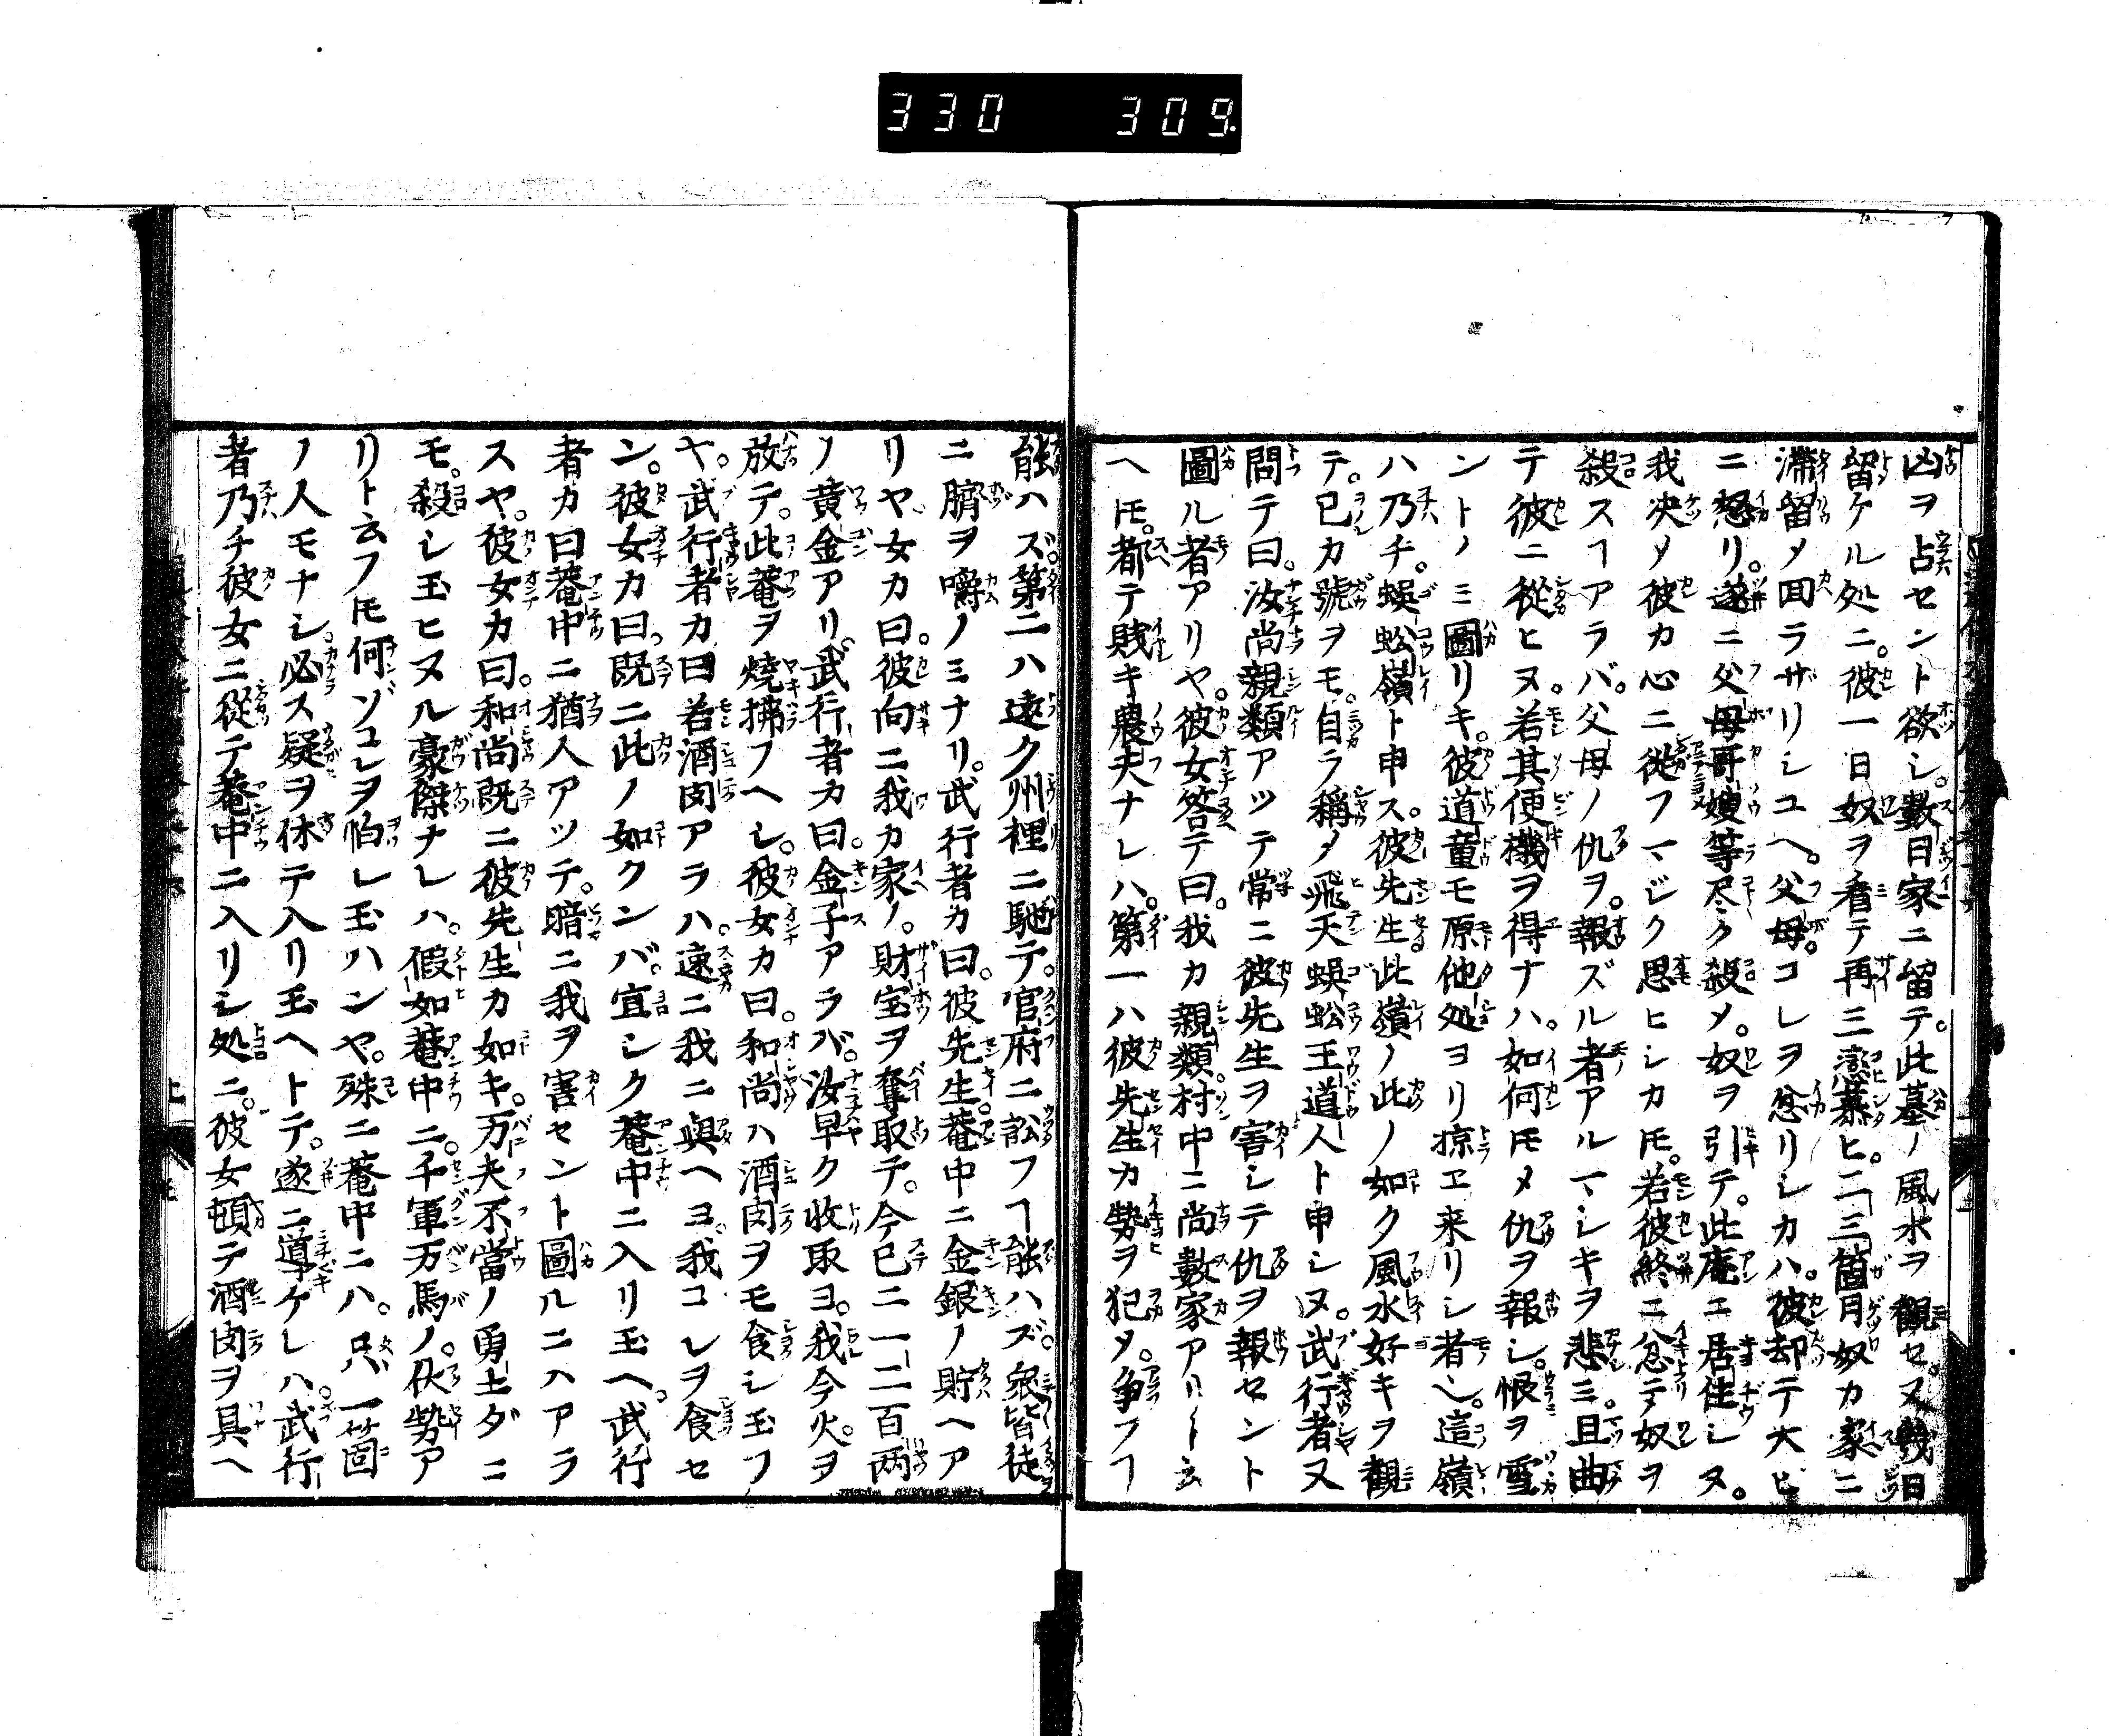 330 309.
凶ヲ占セント欲シ。數日家ニ留テ。此墓ノ風水ヲ觀セ。又幾日
留ケル処ニ。彼一日奴ヲ看テ再三戀慕ヒ。二三箇月奴カ家ニ
滯留メ回ラザリシユヘ。父母。コレヲ忿リシカハ。彼却テ大ヒ
ニ怒リ。遂ニ父母哥嫂等尽ク殺メ。奴ヲ引テ。此庵ニ居住シヌ。
我决メ彼カ心ニ從フマジク思ヒシカ𪜈。若彼終ニ忿テ奴ヲ
殺スヿアラバ。父母ノ仇ヲ。報ズル者アルマシキヲ悲ミ。且曲
テ彼ニ從ヒヌ。若其便機ヲ得ナハ。如何𪜈メ仇ヲ報シ。恨ヲ雪
ントノミ圖リキ。彼道童モ原他処ヨリ掠ヱ来リシ者ヘ。這嶺
ハ乃チ。蜈蚣嶺ト申ス。彼先生此嶺ノ此ノ如ク風水好キヲ觀
テ。已カ號ヲモ。自ラ稱メ飛天蜈蚣王道人ト申シヌ。武行者又
問テ曰。汝尚親類アツテ常ニ彼先生ヲ害シテ仇ヲ報セント
圖ル者アリヤ。彼女答テ曰。我カ親類村中ニ尚數家アリト云
ヘ𪜈。都テ賤キ農夫ナレハ。第一ハ彼先生カ勢ヲ犯メ。争フヿ
能ハズ。第二ハ遠ク州裡ニ馳テ。官府ニ訟フヿ能ハズ。衆皆徒
ニ臍ヲ嚼ノミナリ。武行者カ曰。彼先生。菴中ニ金銀ノ貯ヘア
リヤ。女カ曰。彼向ニ我カ家ノ。財宝ヲ奪取テ。今已ニ一二百两
ノ黄金アリ。武行者カ曰。金子アラバ。汝早ク收取ヨ。我今火。ヲ
放テ。此菴ヲ燒拂フヘシ。彼女カ曰。和尚ハ酒肉ヲモ食シ玉フ
ヤ。武行者カ曰若酒肉アラハ。速ニ我ニ與ヘヨ。我コレヲ食セ
ン。彼女カ曰。既ニ此ノ如クンバ。宜シク菴中ニ入リ玉ヘ。武行
者カ曰菴中ニ猶人アツテ。暗ニ我ヲ害セント圖ルニハアラ
スヤ。彼女カ曰。和尚既ニ彼先生カ如キ。万夫不當ノ勇士ダニ
モ。殺シ玉ヒヌル豪傑ナレハ。假如菴中ニ。千軍万馬ノ。伏勢ア
リト云フ𪜈何ゾコレヲ怕レ玉ハンヤ。殊ニ菴中ニハ。只一箇
ノ人モナシ。必ス疑ヲ休テ入リ玉ヘトテ。遂ニ導ケレハ。武行
者乃チ彼女ニ從テ菴中ニ入リシ処ニ。彼女頓テ酒肉ヲ具ヘ